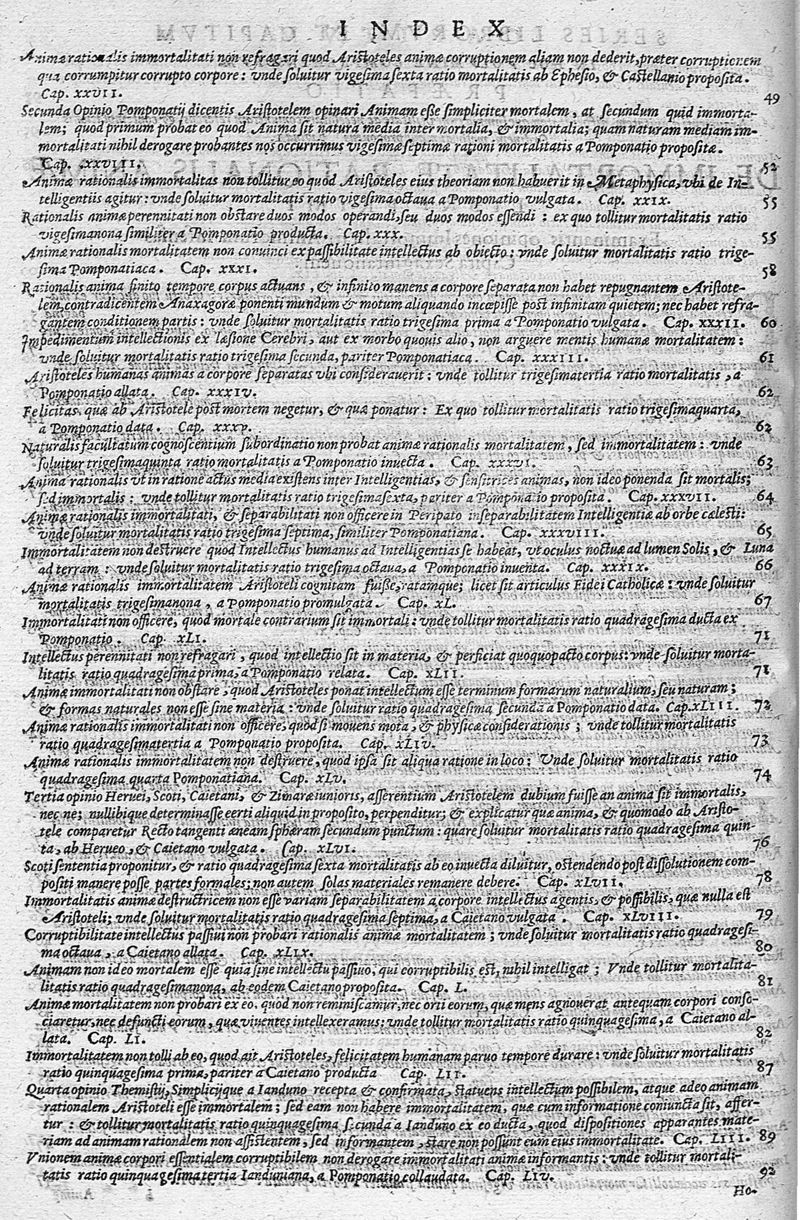 INDEX
Animæ rationalis immortalitati non refragari quod Aristoteles animæ corruptionem aliam non dederit, præter corruptionem
qua corrumpitur corrupto corpore: vnde soluitur vigesima sexta ratio mortalitatis ab Ephesio, & Castellanio proposita.
Cap. XXVII. 49
Secunda Opinio Pomponatij dicentis Aristotelem opinari Animam esse simpliciter mortalem, at secundum quid immorta-
lem; quod primum probat eo quod Anima sit natura media inter mortalia, & immortalia; quam naturam mediam im-
mortalitati nihil derogare probantes nos occurrimus vigesimæseptimæ rationi mortalitatis a Pomponatio propositæ.
Cap. XXVIII. 52
Animæ rationalis immortalitas non tollitur eo quod Aristoteles eius theoriam non habuerit in Metaphysica, vbi de In-
telligentiis agitur: vnde soluitur mortalitatis ratio vigesima octaua a Pomponatio vulgata. Cap. XXIX. 55
Rationalis animæ perennitati non obstare duos modos operandi, seu duos modos essendi: ex quo tollitur mortalitatis ratio
vigesimanona similiter a Pomponatio producta. Cap. XXX. 55
Animæ rationalis mortalitatem non conuinci ex passibilitate intellectus ab obiecto: vnde soluitur mortalitatis ratio trige-
sima Pomponatiaca. Cap. XXXI. 58
Rationalis anima finito tempore corpus actuans, & infinito manens a corpore separata non habet repugnantem Aristote-
lem contradicentem Anaxagoræ ponenti mundum & motum aliquando incœpisse post infinitam quietem; nec habet refra-
gantem conditionem partis: vnde soluitur mortalitatis ratio trigesima prima a Pomponatio vulgata. Cap. XXXII. 60
Impedimentum intellectionis ex læsione Cerebri, aut ex morbo quouis alio, non arguere mentis humanæ mortalitatem:
vnde soluitur mortalitatis ratio trigesima secunda, pariter Pomponatiaca. Cap. XXXIII. 61
Aristoteles humanas animas a corpore separatas vbi considerauerit: vnde tollitur trigesimatertia ratio mortalitatis, a
Pomponatio allata. Cap. XXXIV. 62
Felicitas quæ ab Aristotele post mortem negetur, & quæ ponatur: Ex quo tollitur mortalitatis ratio trigesimaquarta,
a Pomponatio data. Cap. XXXV. 62
Naturalis facultatum cognoscentium subordinatio non probat animæ rationalis mortalitatem, sed immortalitatem: vnde
soluitur trigesimaquinta ratio mortalitatis a Pomponatio inuecta. Cap. XXXVI. 63
Anima rationalis vt in ratione actus media existens inter Intelligentias, & sensitrices animas, non ideo ponenda sit mortalis;
sed immortalis: vnde tollitur mortalitatis ratio trigesimasexta, pariter a Pomponatio proposita. Cap. XXXVII. 64
Animæ rationalis immortalitati, & separabilitati non officere in Peripato inseparabilitatem Intelligentiæ ab orbe cælesti:
vnde soluitur mortalitatis ratio trigesima septima, similiter Pomponatiana. Cap. XXXVIII. 65
Immortalitatem non destruere quod Intellectus humanus ad Intelligentias se habeat, vt oculus noctuæ ad lumen Solis, & Luna
ad terram: vnde soluitur mortalitatis ratio trigesima octaua, a Pomponatio inuenta. Cap. XXXIX. 66
Animæ rationalis immortalitatem Aristoteli cognitam fuisse, ratamque; licet sit articulus Fidei Catholicæ: vnde soluitur
mortalitatis trigesimanona, a Pomponatio promulgata. Cap. XL. 67
Immortalitati non officere, quod mortale contrarium sit immortali: vnde tollitur mortalitatis ratio quadragesima ducta ex
Pomponatio. Cap. XLI. 71
Intellectus perennitati non refragari, quod intellectio sit in materia, & perficiat quoquopacto corpus: vnde soluitur morta-
litatis ratio quadragesima prima, a Pomponatio relata. Cap. XLII. 71
Animæ immortalitati non obstare, quod Aristoteles ponat intellectum esse terminum formarum naturalium, seu naturam;
& formas naturales non esse sine materia: vnde soluitur ratio quadragesima secunda a Pomponatio data. Cap. XLIII. 72
Animæ rationalis immortalitati non officere, quod si mouens mota, & physicæ considerationis; vnde tollitur mortalitatis
ratio quadragesimatertia a Pomponatio proposita. Cap. XLIV. 73
Animæ rationalis immortalitatem non destruere, quod ipsa sit aliqua ratione in loco: Vnde soluitur mortalitatis ratio
quadragesima quarta Pomponatiana. Cap. XLV. 74
Tertia opinio Heruei, Scoti, Caietani, & Zimaræ iunioris, asserentium Aristotelem dubium fuisse an anima sit immortalis,
nec ne; nullibique determinasse certi aliquid in proposito, perpenditur; & explicatur quæ anima, & quomodo ab Aristo-
tele comparetur Recto tangenti æneam sphæram secundum punctum: quare soluitur mortalitatis ratio quadragesima quin-
ta, ab Herueo, & Caietano vulgata. Cap. XLVI. 76
Scoti sententia proponitur, & ratio quadragesima sexta mortalitatis ab eo inuecta diluitur, ostendendo post dissolutionem com-
positi manere posse partes formales; non autem solas materiales remanere debere. Cap. XLVII. 78
Immortalitatis animæ destructricem non esse variam separabilitatem a corpore intellectus agentis, & possibilis, quæ nulla est
Aristoteli; vnde soluitur mortalitatis ratio quadragesima septima, a Caietano vulgata. Cap. XLVIII. 79
Corruptibilitate intellectus passiui non probari rationalis animæ mortalitatem; vnde soluitur mortalitatis ratio quadragesi-
ma octaua, a Caietano allata. Cap. XLIX. 80
Animam non ideo mortalem esse quia sine intellectu passiuo, qui corruptibilis est, nihil intelligat; Vnde tollitur mortalita-
litatis ratio quadragesimanona, ab eodem Caietano proposita. Cap. L. 81
Animæ mortalitatem non probari ex eo, quod non reminiscamur, nec orti eorum, quæ mens agnouerat antequam corpori conso-
ciaretur, nec defuncti eorum, quæ viuentes intellexeramus: vnde tollitur mortalitatis ratio quinquagesima, a Caietano al-
lata. Cap. LI. 82
Immortalitatem non tolli ab eo, quod ait Aristoteles, felicitatem humanam paruo tempore durare: vnde soluitur mortalitatis
ratio quinquagesima primæ, pariter a Caietano producta Cap. LII. 87
Quarta opinio Themistij, Simplicijque a Ianduno recepta & confirmata, statuens intellectum possibilem, atque adeo animam
rationalem Aristoteli esse immortalem; sed eam non habere immortalitatem, quæ cum informatione coniuncta sit, affer-
tur: & tollitur mortalitatis ratio quinquagesima secunda a Ianduno ex eo ducta, quod dispositiones apparantes mate-
riam ad animam rationalem non assistentem, sed informantem, stare non possunt cum eius immortalitate. Cap. LIII. 89
Vnionem animæ corpori essentialem corruptibilem non derogare immortalitati animæ informantis: vnde tollitur mortali-
tatis ratio quinquagesima tertia Ianduniana, a Pomponatio collaudata. Cap. LIV. 92
Ho-